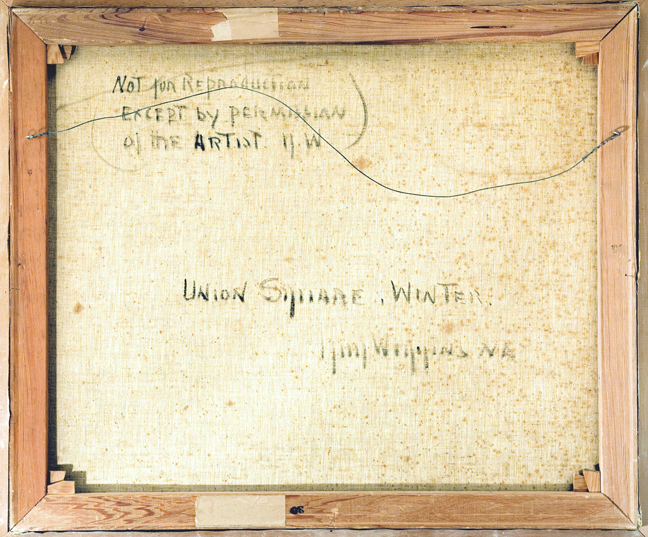 Not for Reproduction
Except by Permission
of the Artist. G.W
Union Square, Winter.
Guy Wiggins NA